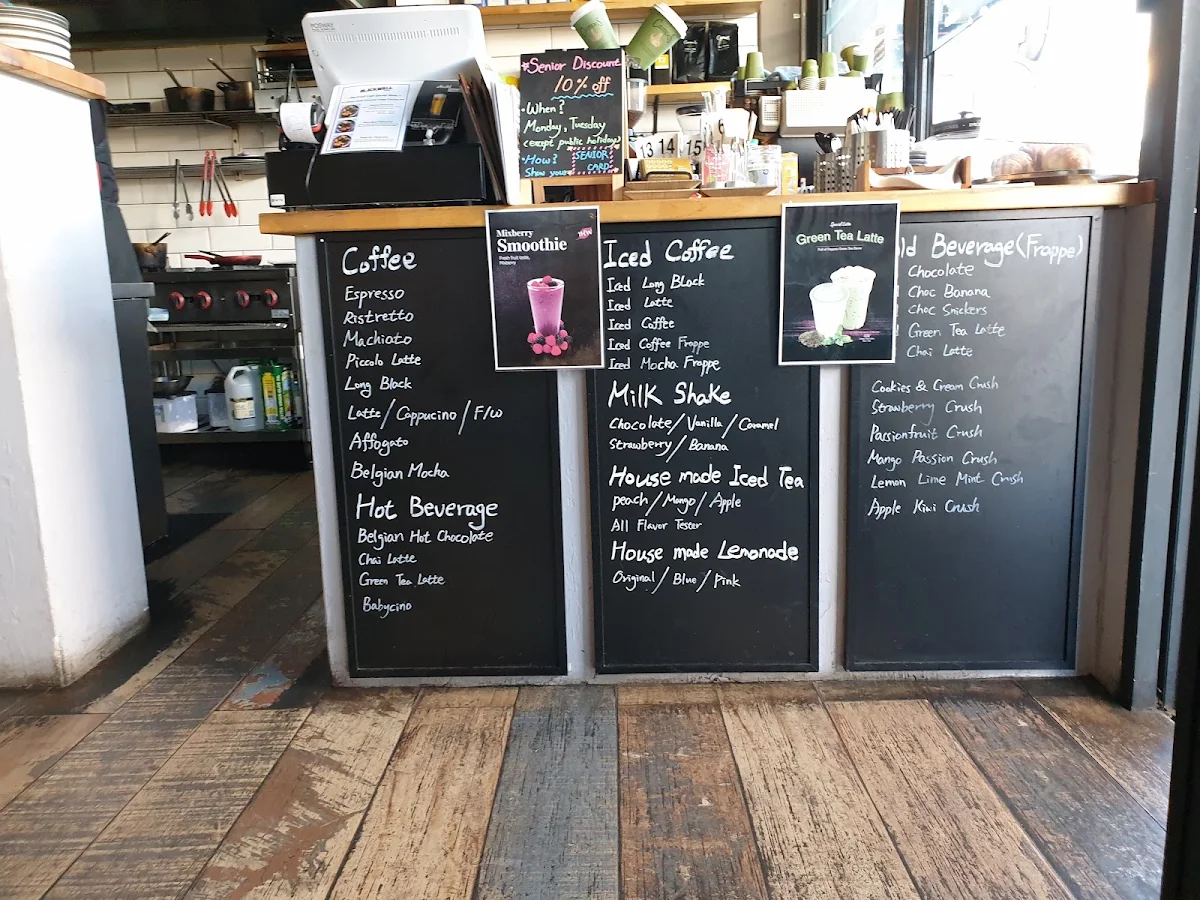 POSWAY
*Senior Discount
10% off
• When?
Monday, Tuesday
(except public holiday)
• How?
Show your
SENIOR
CARD
13 14 15
Coffee
Espresso
Ristretto
Machiato
Piccolo Latte
Long Black
Latte/Cappucino/F/w
Affogato
Belgian Mocha
Hot Beverage
Belgian Hot Chocolate
Chai Latte
Green Tea Latte
Babycino
Mixberry
Smoothie
Fresh fruit lovers,
Mixberry
Iced Coffee
Iced Long Black
Iced Latte
Iced Coffee
Iced Coffee Frappe
Iced Mocha Frappe
Milk Shake
Chocolate/Vanilla/Caramel
Strawberry/Banana
House made Iced Tea
peach/Mango/Apple
All Flavor Tester
House made Lemonade
Original/Blue/Pink
Green Tea Latte
ld Beverage(Frappe)
Chocolate
Choc Banana
Choc Snickers
Green Tea Latte
Chai Latte
Cookies & Cream Crush
Strawberry Crush
Passionfruit Crush
Mango Passion Crush
Lemon Lime Mint Crush
Apple Kiwi Crush